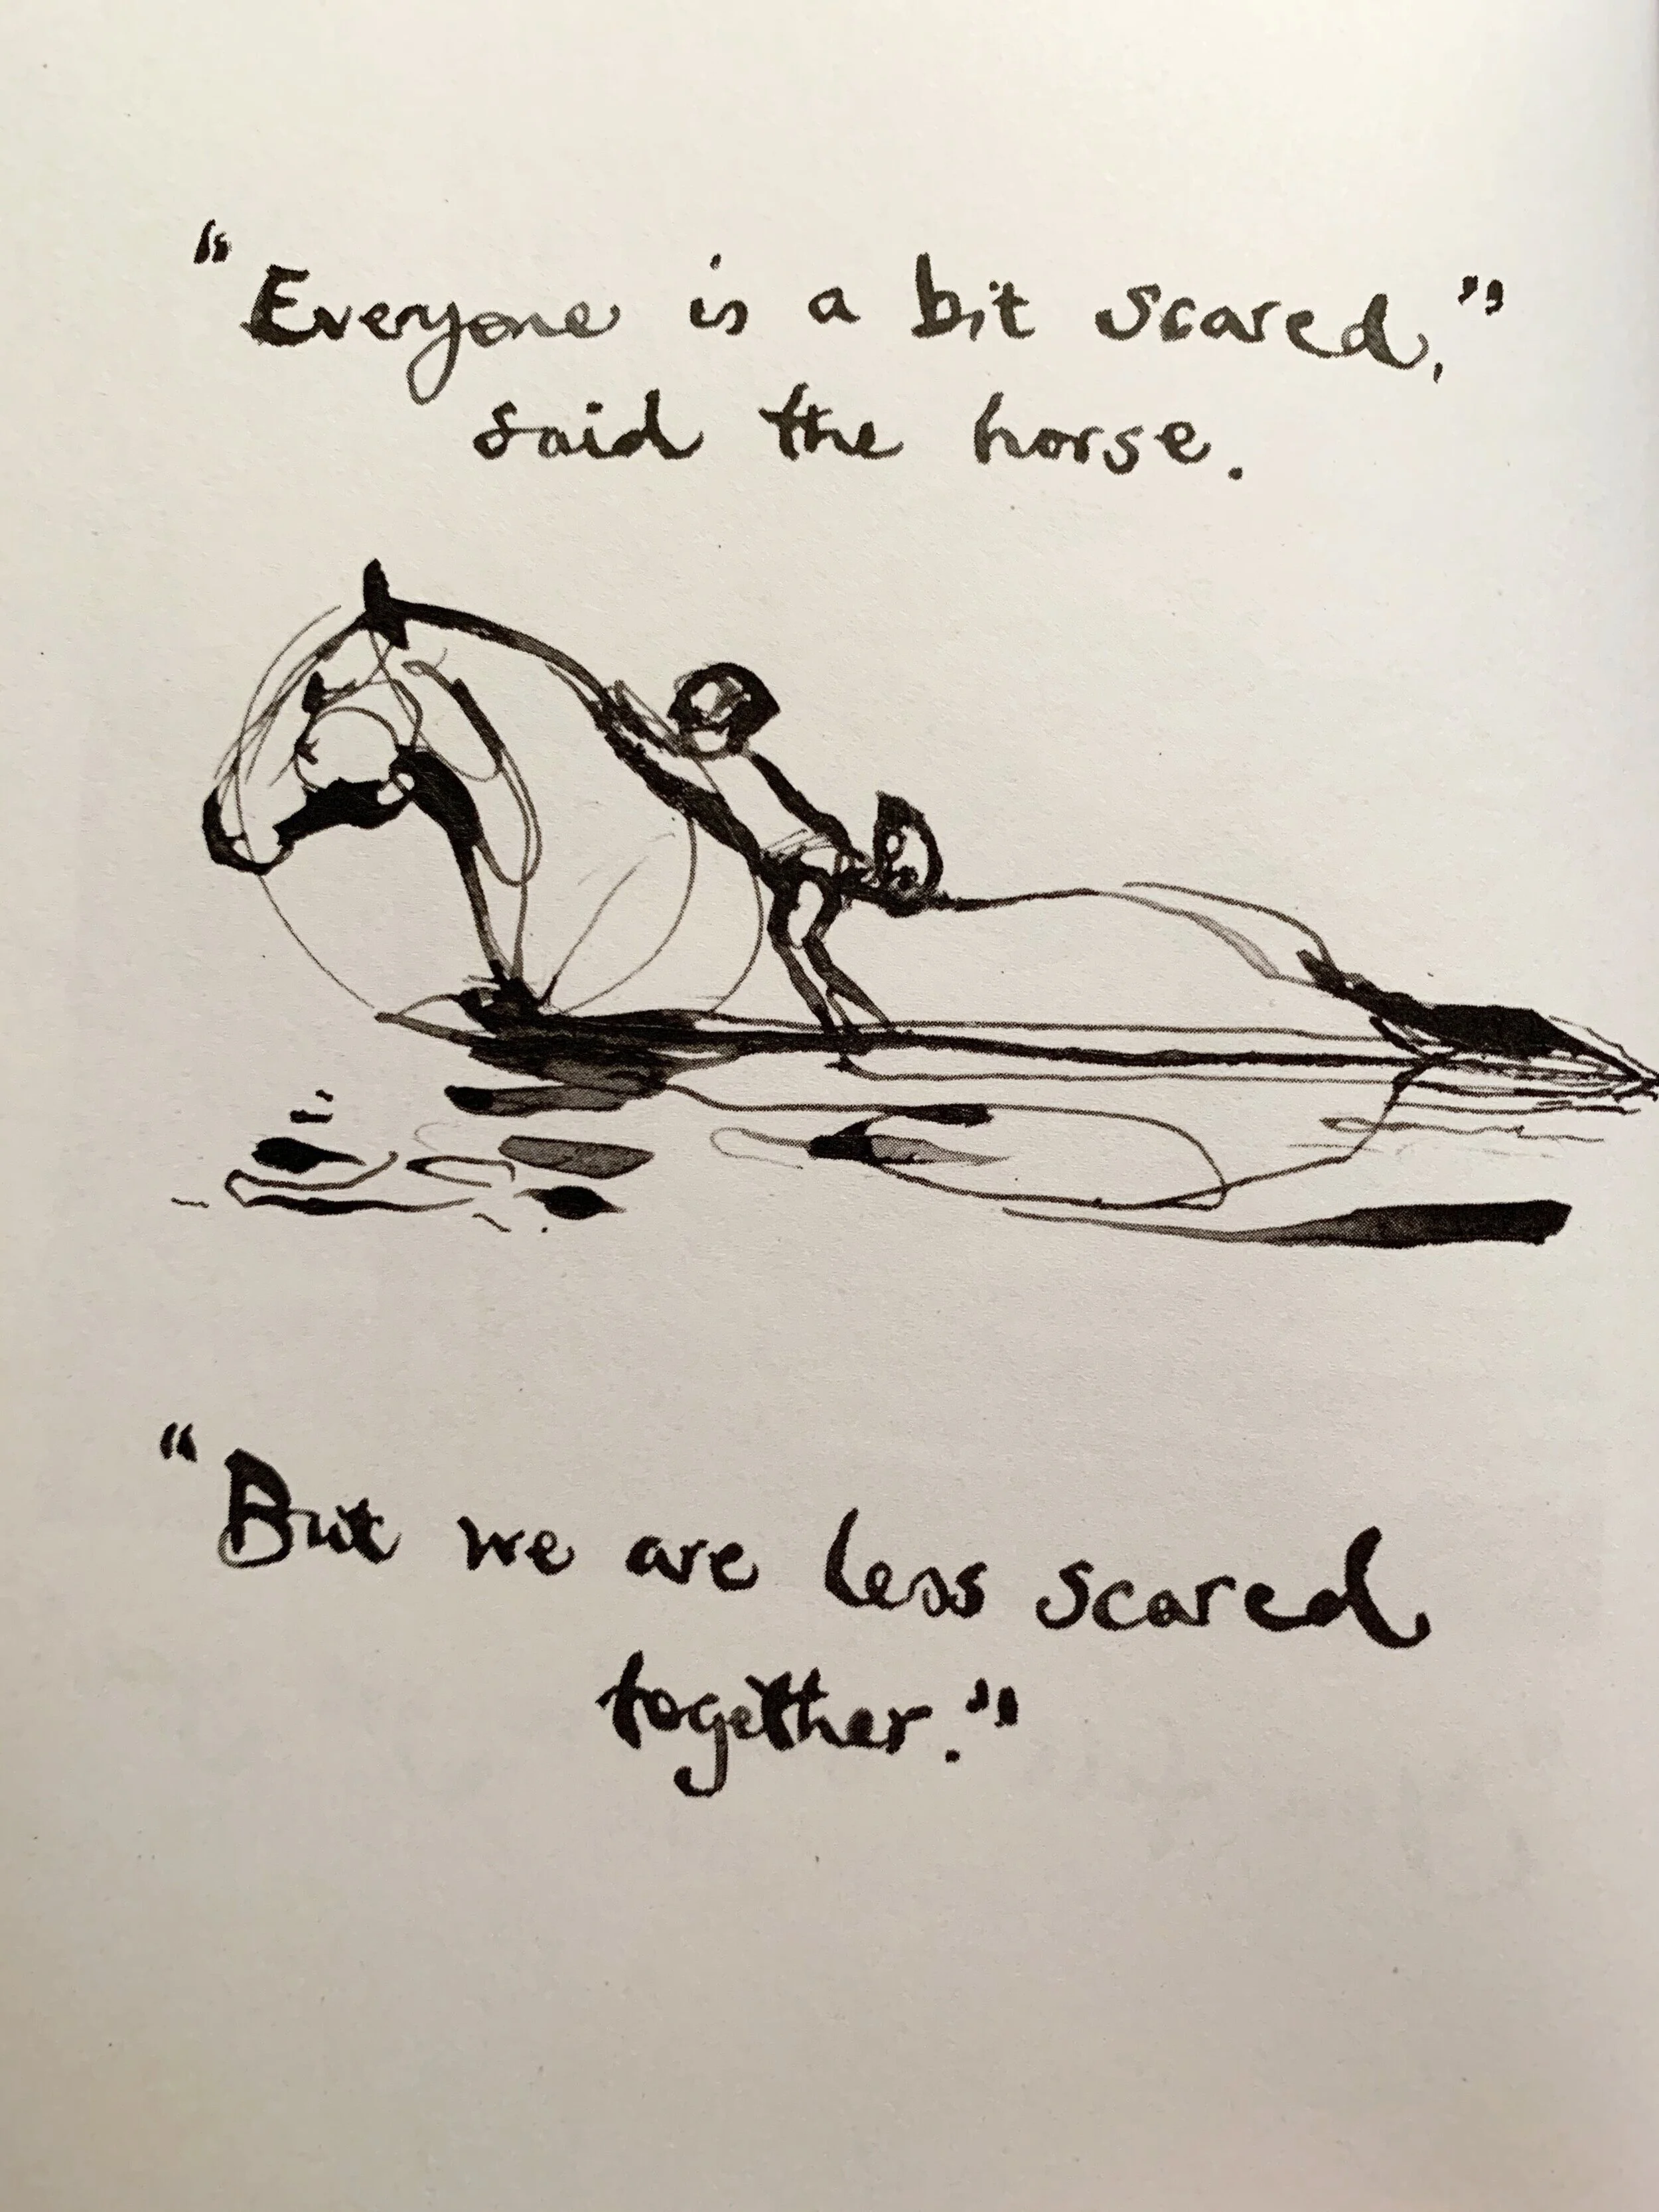 "Everyone is a bit scared,"
said the horse.
"But we are less scared
together."